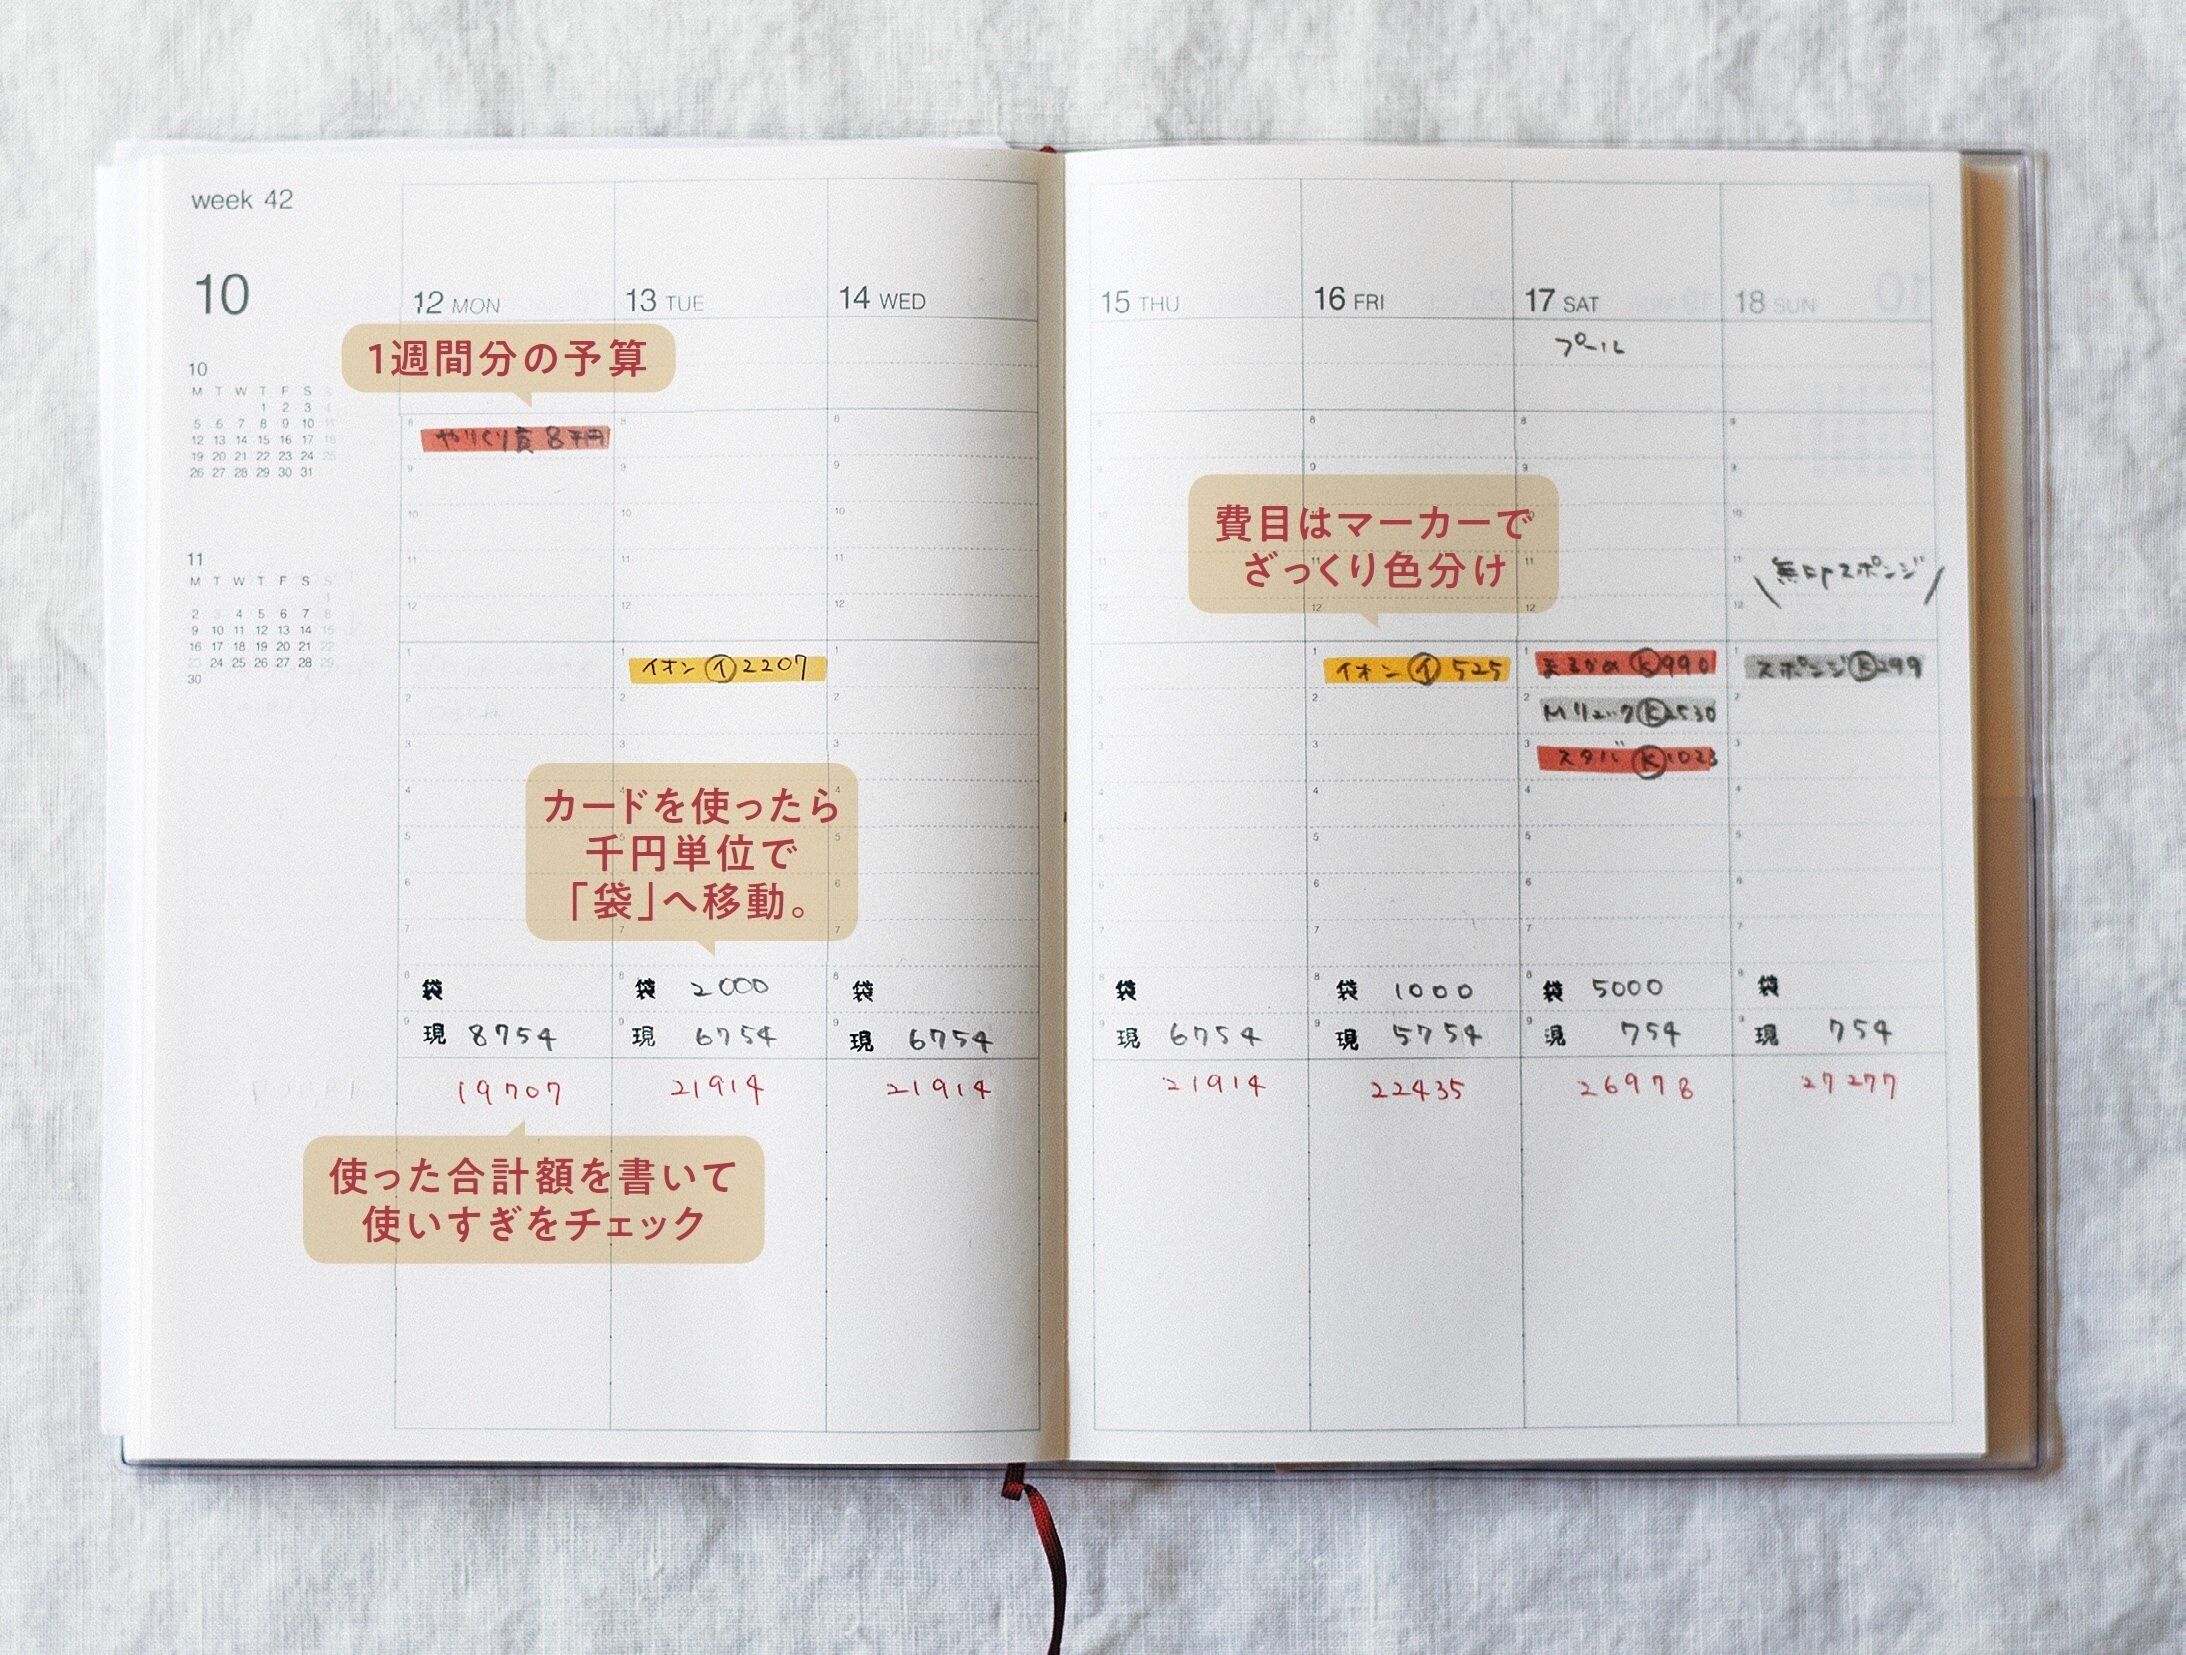 week 42
10
12 MON
13 TUE
14 WED
15 THU
16 FRI
17 SAT
18 SUN
プール
1週間分の予算
やりくり費 8千円
10
M T W T F S
1 2 3
5 6 7 8 9 10 11
12 13 14 15 16 17 18
19 20 21 22 23 24 25
26 27 28 29 30 31
11
M T W T F S S
1
2 3 4 5 6 7 8
9 10 11 12 13 14 15
16 17 18 19 20 21 22
23 24 25 26 27 28 29
30
費目はマーカーで
ざっくり色分け
無印スポンジ
イオン イ 2207
イオン イ 525
まるかめ K 990
スポンジ K 299
Mリュック K 2530
スタバ K 1023
カードを使ったら
千円単位で
「袋」へ移動。
袋
袋 2000
袋
袋
袋 1000
袋 5000
袋
現 8754
現 6754
現 6754
現 6754
現 5754
現 754
現 754
19707
21914
21914
21914
22435
26978
27277
使った合計額を書いて
使いすぎをチェック